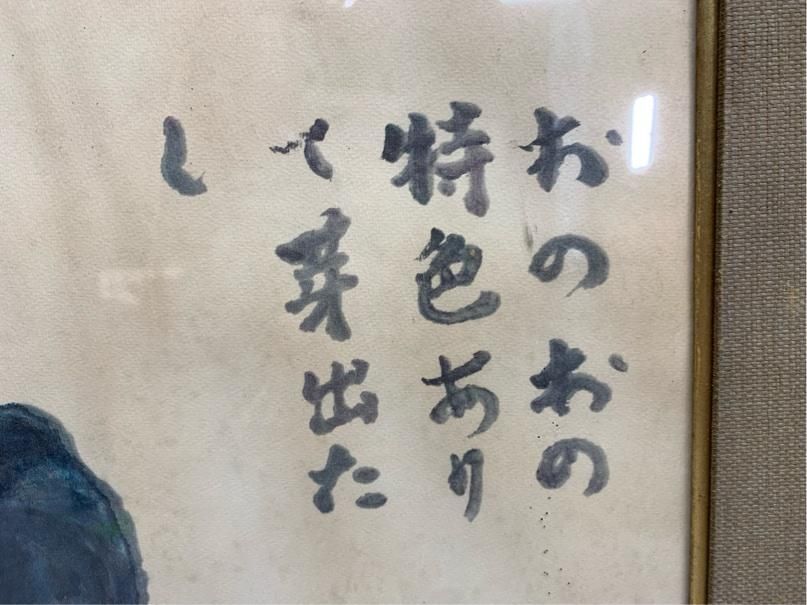 おのおの
特色あり
て芽出た
し